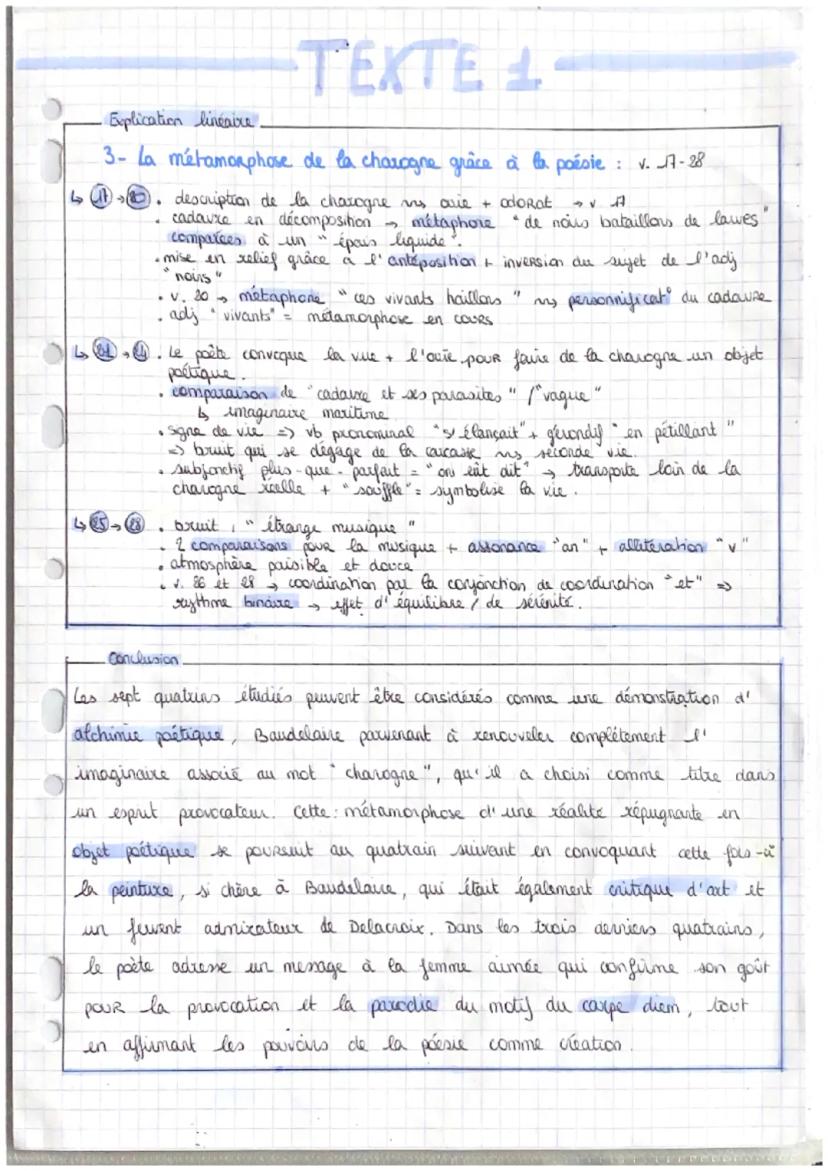 TEXTE 1
Explication linéaire
3- La métamorphose de la charogne grâce à la poésie : v. 17-28
↳ 17 → 20 . description de la charogne ⇝ ouïe + odorat → v 17
. cadavre en décomposition → métaphore "de noirs bataillons de larves"
comparées à un "épais liquide".
. mise en relief grâce à l'antéposition + inversion du sujet de l'adj
"noirs"
. v. 20 → métaphore "ces vivants haillons" ⇝ personnificat° du cadavre
. adj "vivants" = métamorphose en cours
↳ 21 → 24 . Le poète convoque la vue + l'ouïe pour faire de la charogne un objet
poétique.
. comparaison de "cadavre et ses parasites" / "vague"
↳ imaginaire maritime
. signe de vie => vb pronominal "s'élançait" + gérondif "en pétillant"
=> bruit qui se dégage de la carcasse ⇝ seconde vie.
. subjonctif plus-que-parfait = "on eût dit" → transporte loin de la
charogne réelle + "souffle" = symbolise la vie.
↳ 25 → 28 . bruit, "étrange musique"
. 2 comparaisons pour la musique + assonance "an" + allitération "v"
. atmosphère paisible et douce
. v. 26 et 28 → coordination par la conjonction de coordination "et" =>
rythme binaire → effet d'équilibre / de sérénité.
Conclusion
Les sept quatrains étudiés peuvent être considérés comme une démonstration d'
alchimie poétique, Baudelaire parvenant à renouveler complétement l'
imaginaire associé au mot "charogne", qu'il a choisi comme titre dans
un esprit provocateur. Cette métamorphose d'une réalité répugnante en
objet poétique se poursuit au quatrain suivant en convoquant cette fois-ci
la peinture, si chère à Baudelaire, qui était également critique d'art et
un fervent admirateur de Delacroix. Dans les trois derniers quatrains,
le poète adresse un message à la femme aimée qui confirme son goût
pour la provocation et la parodie du motif du carpe diem, tout
en affirmant les pouvoirs de la poésie comme création.